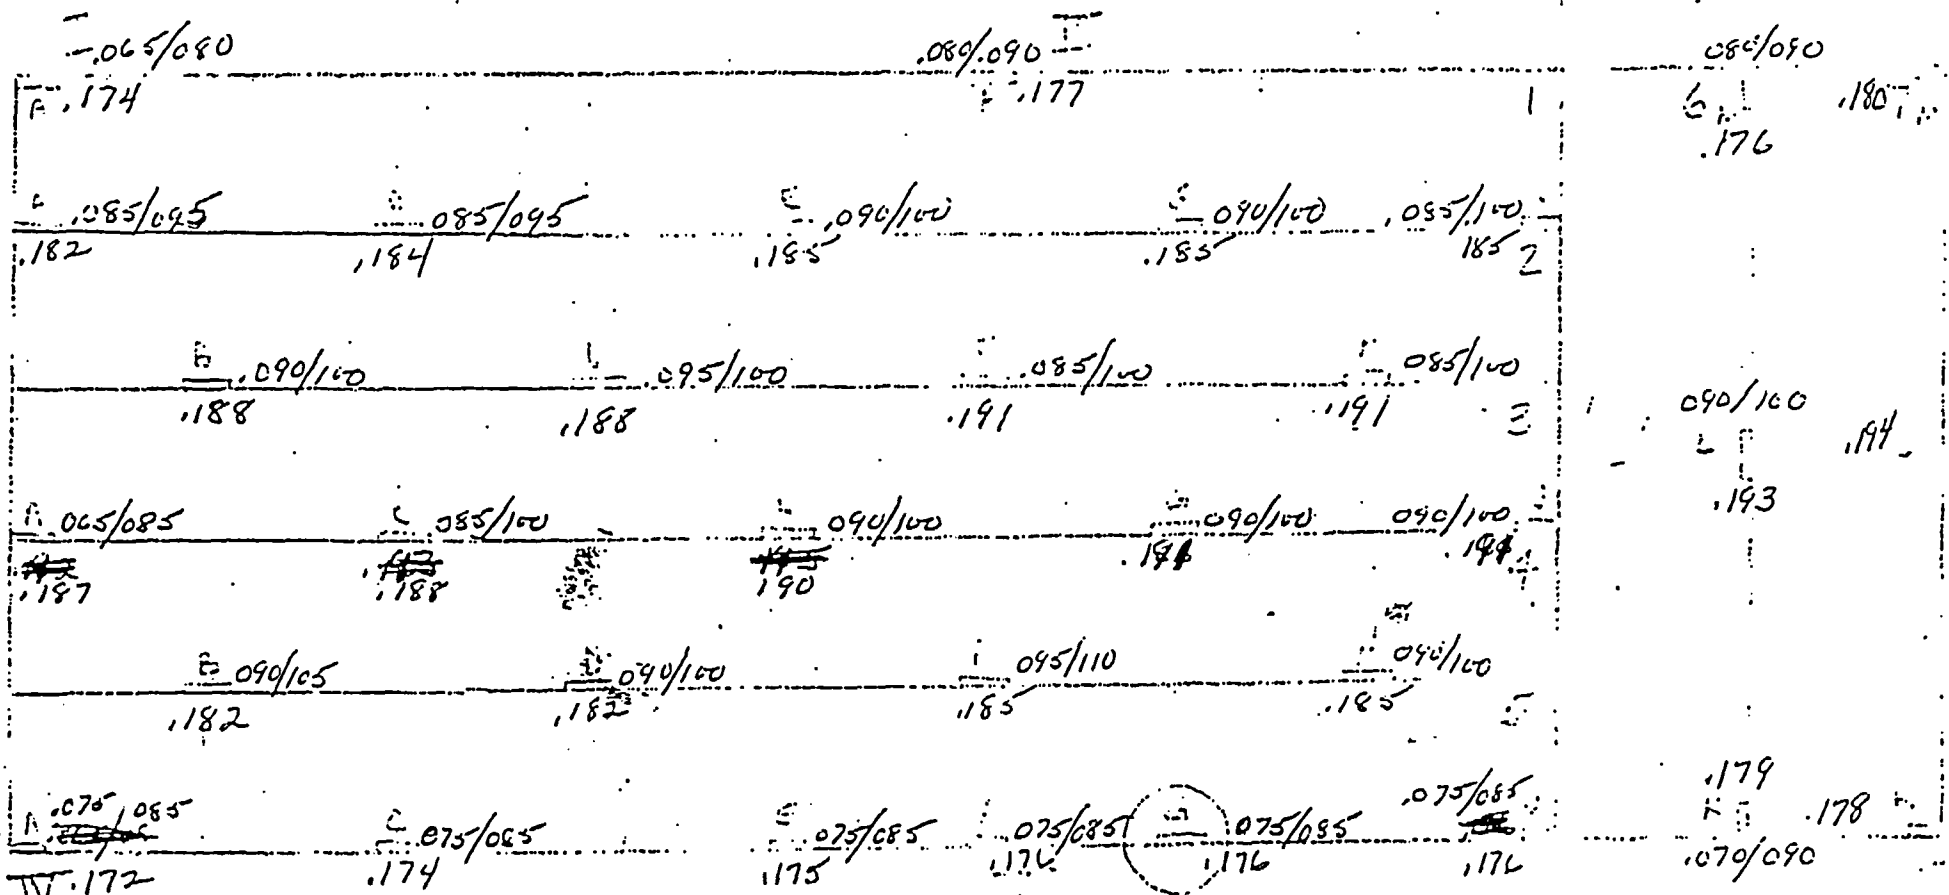 .065/080 .080/.090 080/090
A .174 .177 1 6 .176 .180
.085/095 085/095 .090/100 090/100 .085/100
.182 .184 .185 .185 185 2
B .090/100 .095/100 .085/100 085/100
.188 .188 .191 .191 3
090/100
.194
.193
A 065/085 C 085/100 090/100 090/100 090/100
.187 .188 190 4
B 090/105 090/100 095/110 090/100
.182 .182 .185 .185 5
A .075/085 C 075/085 E 075/085 075/085 G 075/085 .075/085
.172 .174 .175 .176 .176 .176
.179
.178
.070/090